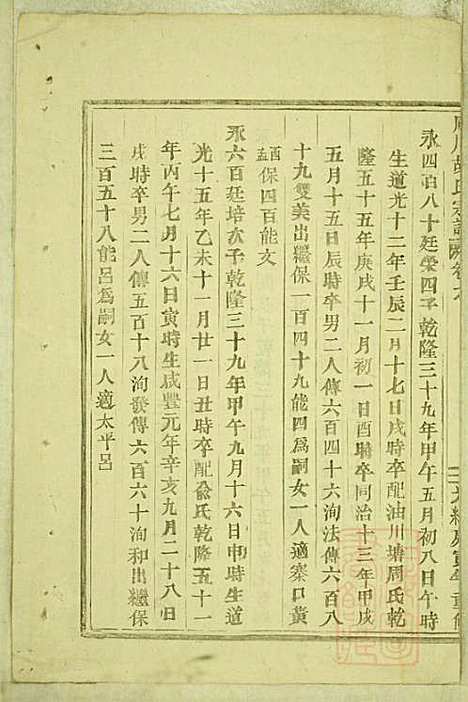 胡氏宗譜
永四百八十廷榮四子乾隆三十九年甲午五月初八日午時
生道光十二年壬辰二月十七日戌時卒配油川塘周氏乾
隆五十五年庚戌十一月初一日酉時卒同治十三年甲戌
五月十五日辰時卒男二人傳六百四十六洵法傳六百八
十九雙美出繼保一百四十九能四為嗣女一人適寨口黃
酉孟保四百能文
永六百廷培次子乾隆三十九年甲午九月十六日申時生道
光十五年乙未十一月廿一日丑時卒配俞氏乾隆五十一
年丙午七月十六日寅時生咸豐元年辛亥九月二十八日
戌時卒男二人傳五百十八洵發傳六百六十洵和出繼保
三百五十八能呂為嗣女一人適太平呂